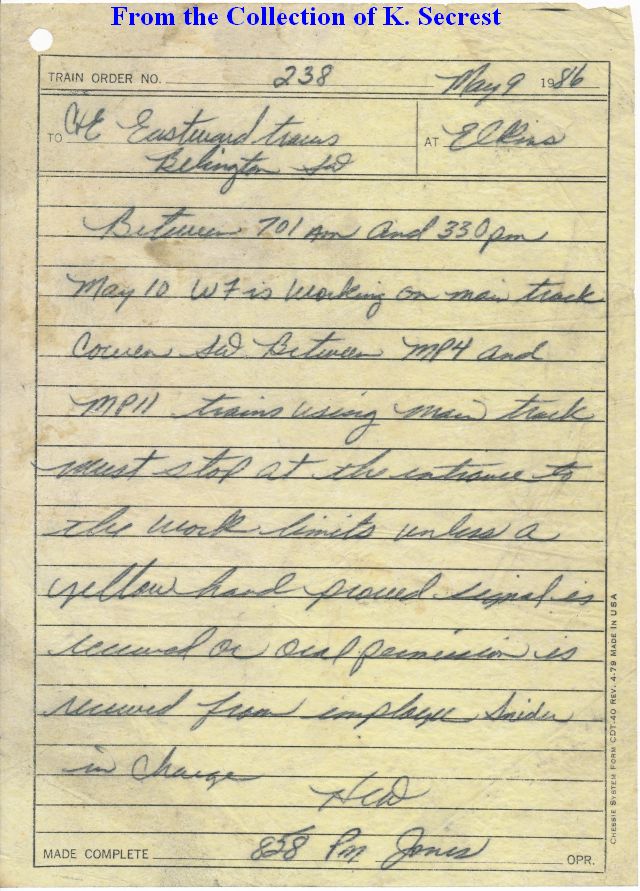 From the Collection of K. Secrest
TRAIN ORDER NO. 238 May 9 1986
TO C&E Eastward trains AT Elkins
Belington SD
Between 701 Am and 330 pm
May 10 W7 is working on main track
Cowen SD Between MP4 and
MP11 trains using main track
must stop at the entrance to
the work limits unless a
yellow hand proceed signal is
received or oral permission is
received from employee Snider
in charge
HCD
MADE COMPLETE 858 Pm Jones OPR.
CHESSIE SYSTEM FORM CDT-40 REV. 4-79 MADE IN USA